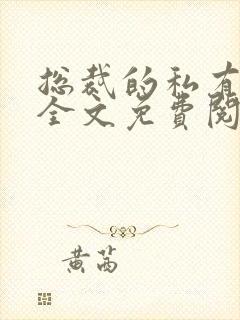 总裁的私有
全文免费阅
黄芮